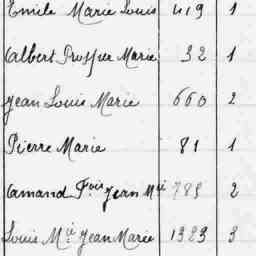 Emile Marie Louis 419 1
Albert Prosper Marie 32 1
Jean Louis Marie 660 2
Pierre Marie 81 1
Amand Fois Jean Mie 2
Louis Mie Jean Marie 1323 3